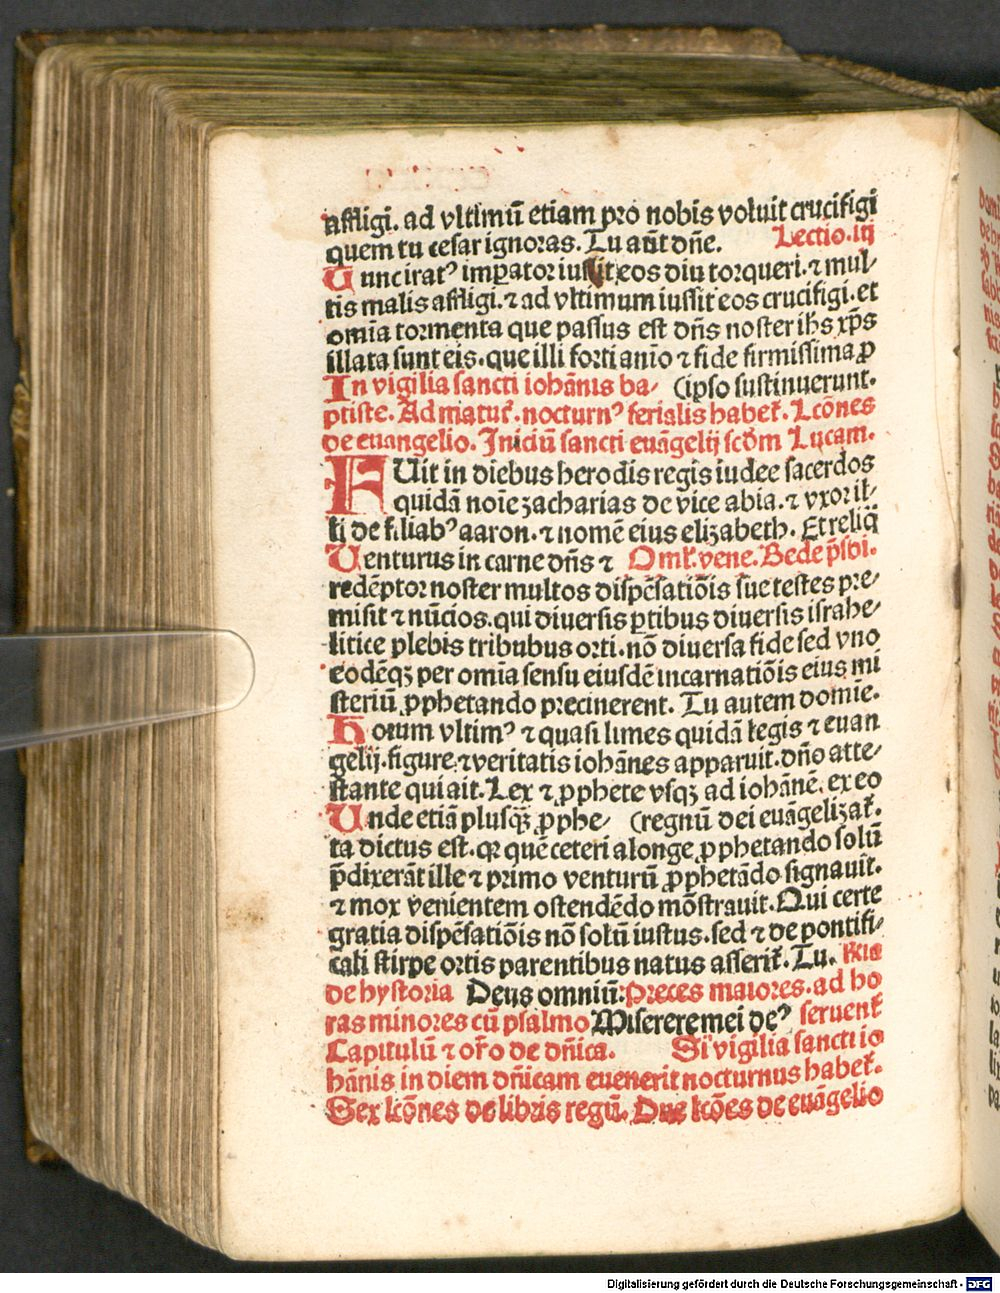 affligi. ad vltimū etiam pro nobis voluit crucifigi
quem tu cesar ignoras. Tu aūt dn̄e. Lectio. iij
Tunc iratꝰ imꝑator iussit eos diu torqueri. ⁊ mul⸗
tis malis affligi. ⁊ ad vltimum iussit eos crucifigi. et
omīa tormenta que passus est dn̄s noster ihs xp̄s
illata sunt eis. que illi forti anīo ⁊ fide firmissima ꝑ
In vigilia sancti iohānis ba⸗ (ipso sustinuerunt.
ptiste. Ad matut̄. nocturnꝰ ferialis habet̄. Lcōnes
de euangelio. Iniciū sancti euāgelij scd̄m Lucam.
FUit in diebus herodis regis iudee sacerdos
quidā noīe zacharias de vice abia. ⁊ vxor il⸗
li de filiabꝰ aaron. ⁊ nomē eius elizabeth. Et reliq̄
Venturus in carne dn̄s ⁊ Oml̄. vene. Bede p̄sbi.
redēptor noster multos dispēsatiōis sue testes pre⸗
misit ⁊ nūcios. qui diuersis ꝑtibus diuersis israhe⸗
litice plebis tribubus orti. nō diuersa fide sed vno
eodēqꝫ per omīa sensu eiusdē incarnatiōis eius mi
steriū ꝓphetando precinerent. Tu autem domīe.
Horum vltimꝰ ⁊ quasi limes quidā legis ⁊ euan
gelij. figure ⁊ veritatis iohānes apparuit. dn̄o atte⸗
stante qui ait. Lex ⁊ ꝓphete vsqꝫ ad iohānē. ex eo
Unde etiā plusqꝫ̄ ꝓphe⸗ (regnū dei euāgelizat̄.
ta dictus est. qꝛ quē ceteri a longe ꝓphetando solū
p̄dixerāt ille ⁊ primo venturū ꝓphetādo signauit.
⁊ mox venientem ostendēdo mōstrauit. Qui certe
gratia dispēsatiōis nō solū iustus. sed ⁊ de pontifi⸗
cali stirpe ortis parentibus natus asserit̄. Tu. Rn̄ia
de hystoria Deus omniū: Preces maiores. ad ho
ras minores cū psalmo Miserere mei deꝰ seruent̄
Capitulū ⁊ or̄o de dn̄ica. Si vigilia sancti io
hānis in diem dn̄icam euenerit nocturnus habet̄.
Sex lcōnes de libris regū. Due lcōes de euāgelio
Digitalisierung gefördert durch die Deutsche Forschungsgemeinschaft - DFG